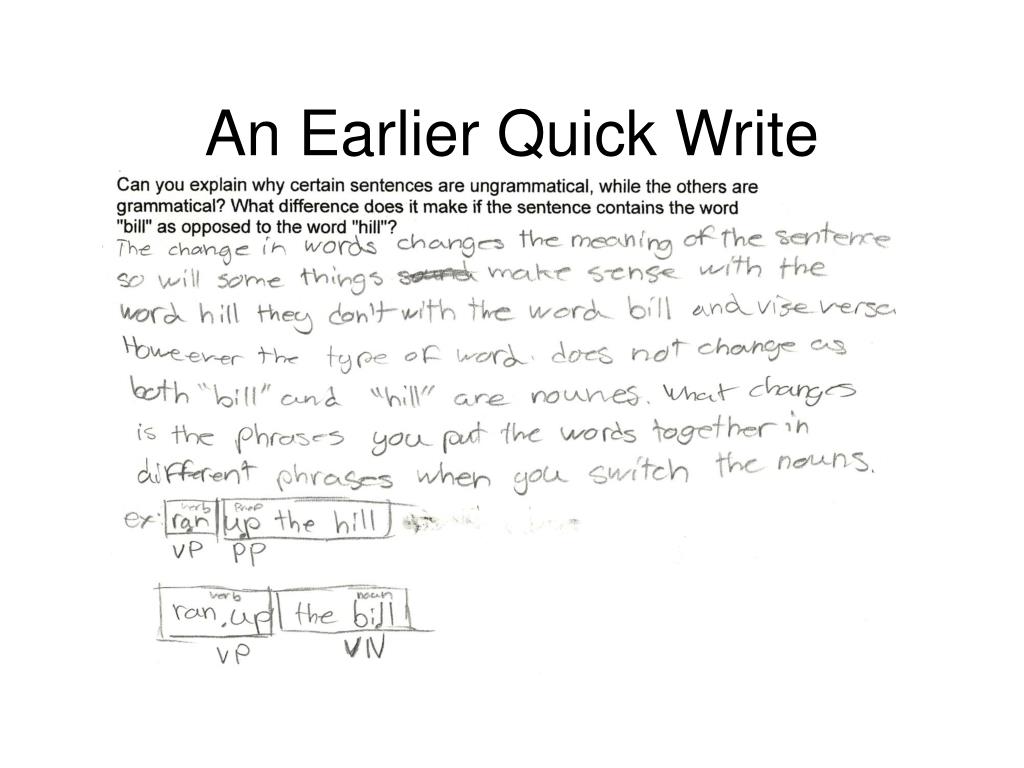 An Earlier Quick Write
Can you explain why certain sentences are ungrammatical, while the others are
grammatical? What difference does it make if the sentence contains the word
"bill" as opposed to the word "hill"?
The change in words changes the meaning of the sentence
so will some things make sense with the
word hill they don't with the word bill and vise versa.
However the type of word does not change as
both "bill" and "hill" are nounes. What changes
is the phrases you put the words together in
different phrases when you switch the nouns.
verb prep
ex: ran up the hill
VP PP
verb noun
ran up the bill
VP VN